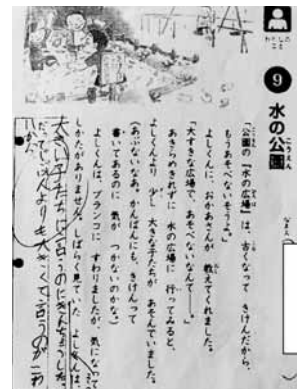 わたしの
こと
9
水の公園
こうえん
なまえ
「公園の『水の広場』は、古くなって きけんだから、
こうえん
もうあそべないそうよ。」
よしくんに、おかあさんが 教えてくれました。
「大すきな広場で、あそべないなんて――。」
あきらめきれずに 水の広場に 行ってみると、
よしくんより 少し 大きな子たちが あそんでいました。
(あぶないなあ。かんばんにも、きけんって
書いてあるのに 気が つかないのかな。)
よしくんは、ブランコに すわりましたが、気になって
しかたがありません。しばらく見ていた よしくんは、
大きい子たちに言うのにきんちょうした。
だってじぶんよりも大きくて言うのがこわ
いから。